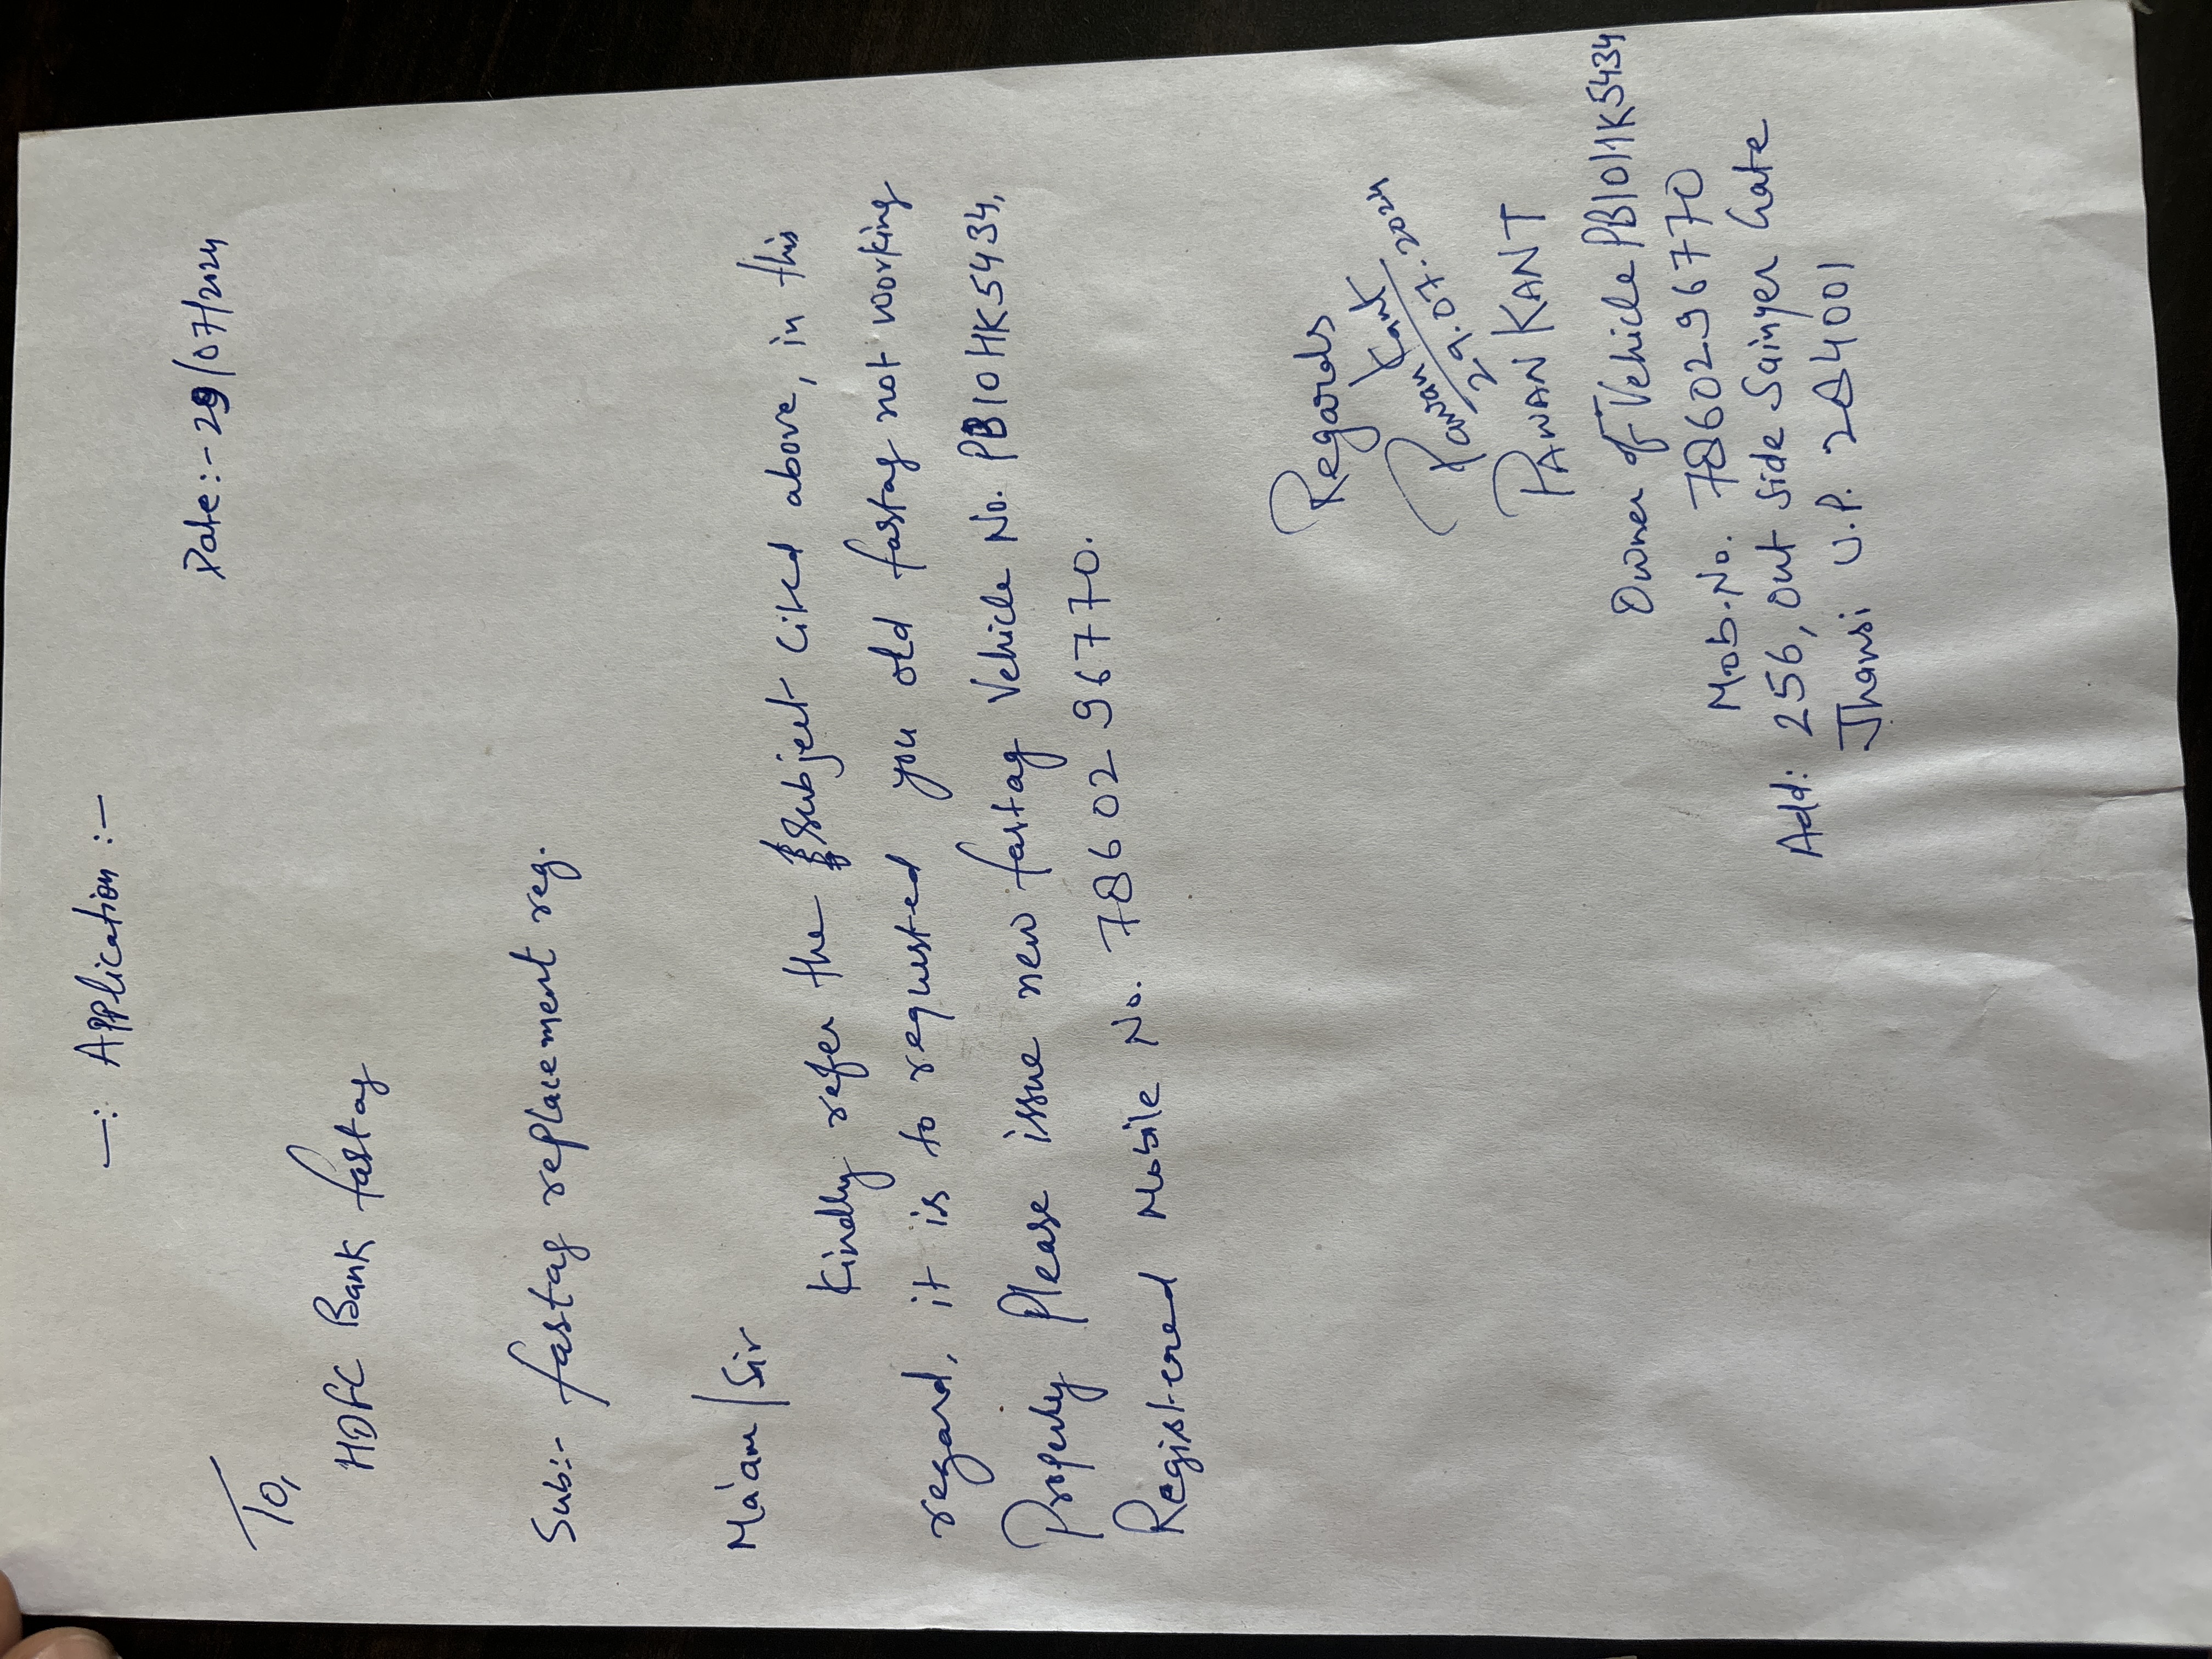 —: Application :—
Date:- 29/07/2024
To,
HDFC Bank fastag
Sub:- fastag replacement reg.
Ma'am/Sir
Kindly refer the subject cited above, in this
regard, it is to requested you old fastag not working
Properly Please issue new fastag Vehicle No. PB10HK5434,
Registered Mobile No. 7860296770.
Regards
Pawan Kant
29.07.2024
PAWAN KANT
Owner of Vehicle PB10HK5434
Mob.No. 7860296770
Add: 256, Out Side Sainyer Gate
Jhansi U.P. 284001